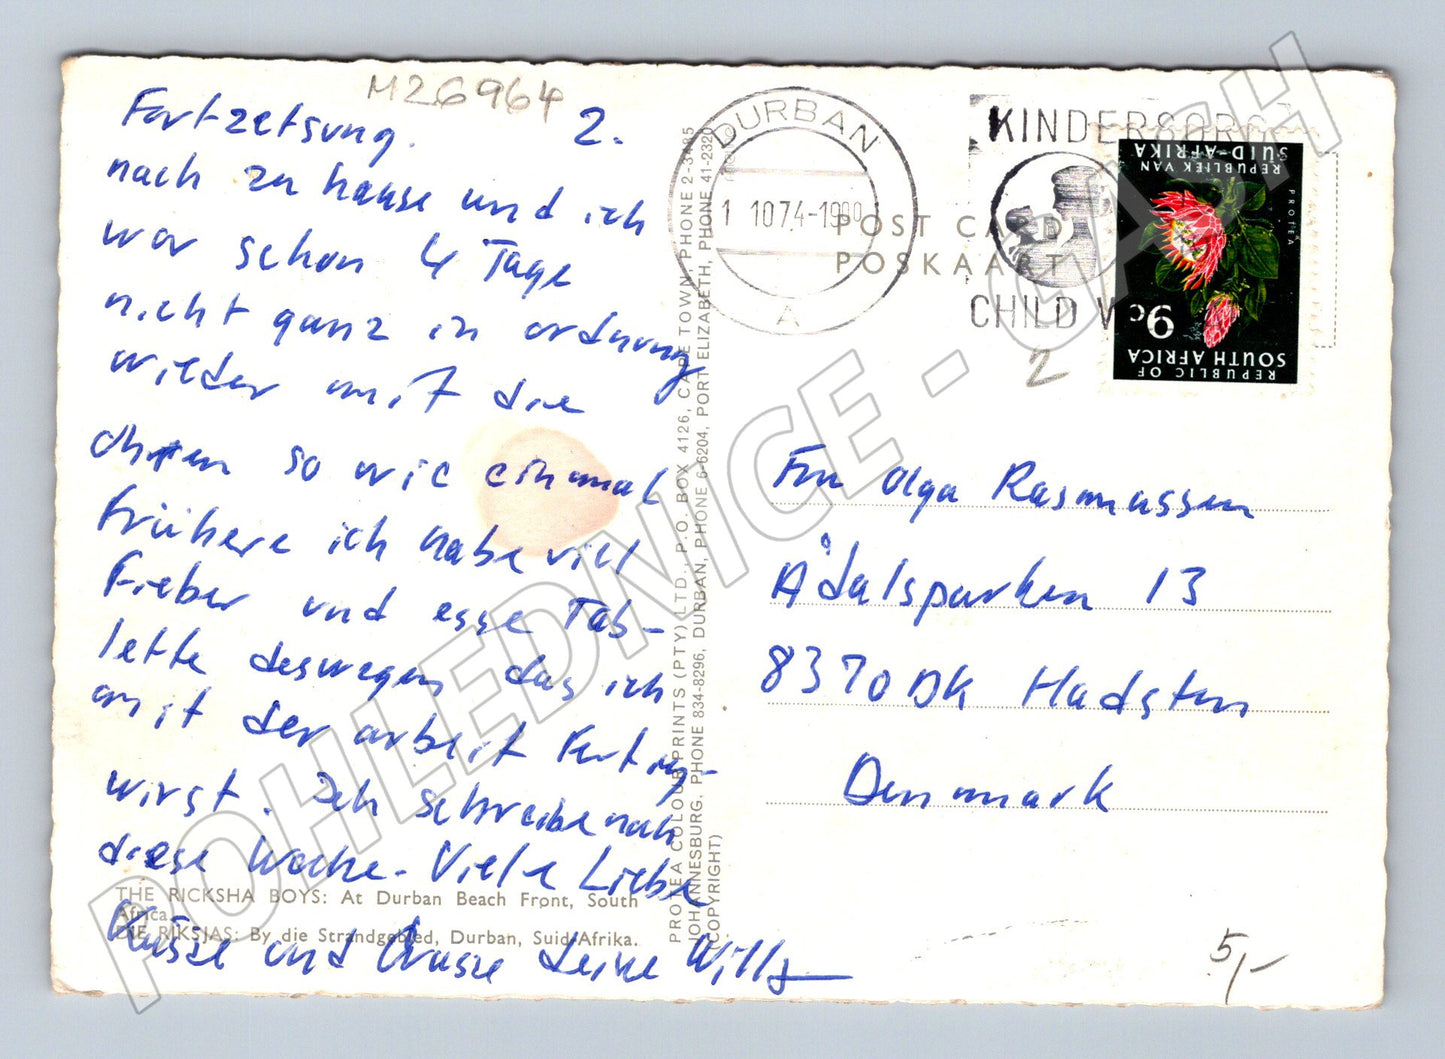 M26964
Fortzetsung. 2.
nach zu hause und ich
war schon 4 Tage
nicht ganz in ordnung
wieder mit die
Ohren so wie einmal
früher ich habe viel
Fieber und esse Tab-
lette deswegen das ich
mit der arbeit fertig-
wirst. Ich schreibe noch
diese Woche. Viele Liebe
Küsse und Grüsse deine Willy
THE RICKSHA BOYS: At Durban Beach Front, South
Africa.
DIE RIKSJAS: By die Strandgebied, Durban, Suid-Afrika.
PROTEA COLOUR PRINTS (PTY) LTD., P.O. BOX 4126, CAPE TOWN, PHONE 2-3485
JOHANNESBURG, PHONE 834-8296, DURBAN, PHONE 6-6204, PORT ELIZABETH, PHONE 41-2320
(COPYRIGHT)
DURBAN
1 10 74-1900
A
POST CARD
POSKAART
KINDERSORG
CHILD W
2
REPUBLIC OF
SOUTH AFRICA
9c
PROTEA
REPUBLIEK VAN
SUID-AFRIKA
Olga Rasmussen
Ådalsparken 13
8370 DK Hadsten
Denmark
5,-
POHLEDNICE - CACH